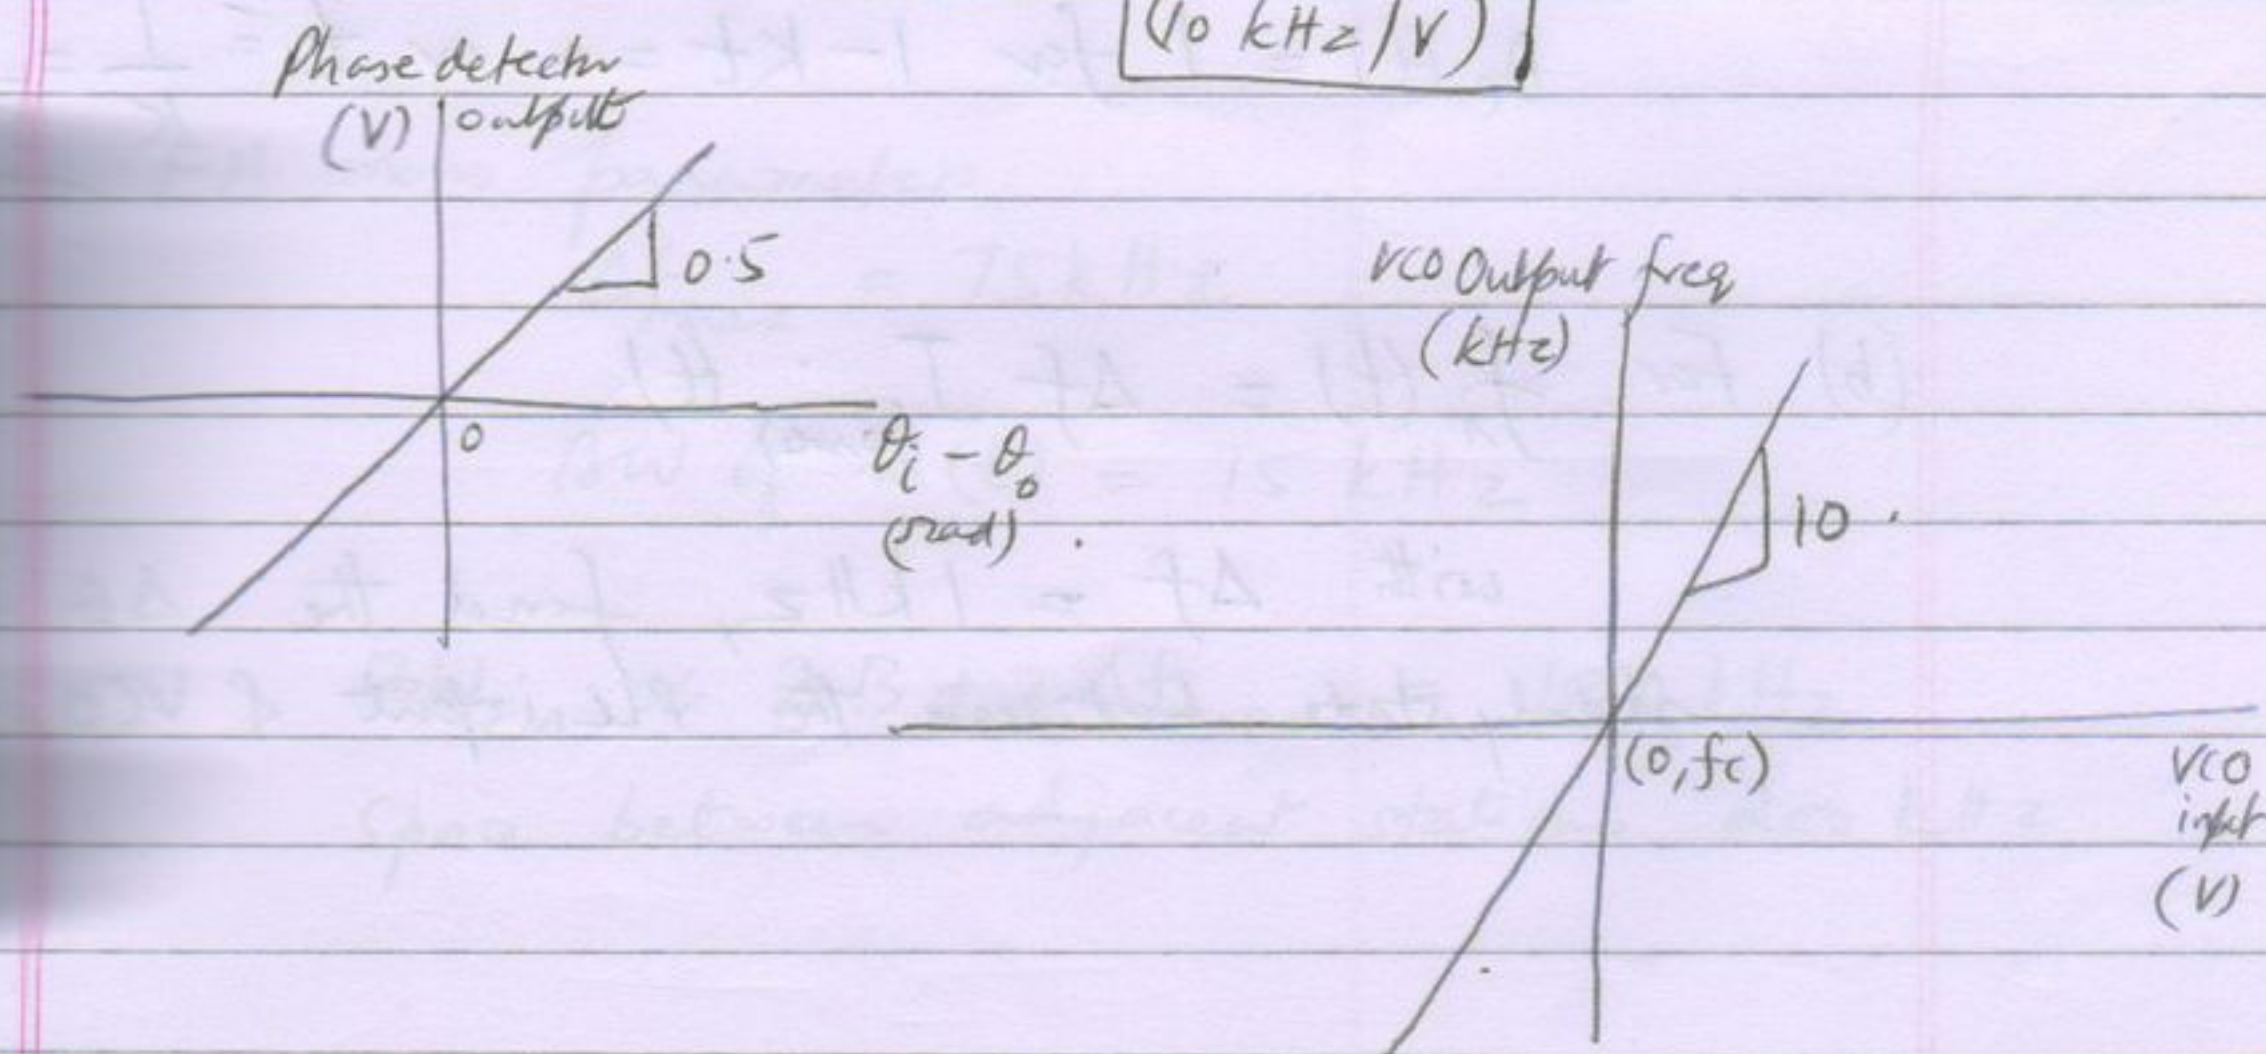 (10 kHz/V)
Phase detector
(V) output
0.5
0
θi - θo
(rad).
VCO Output freq
(kHz)
10.
(0,fc)
VCO
input
(V)